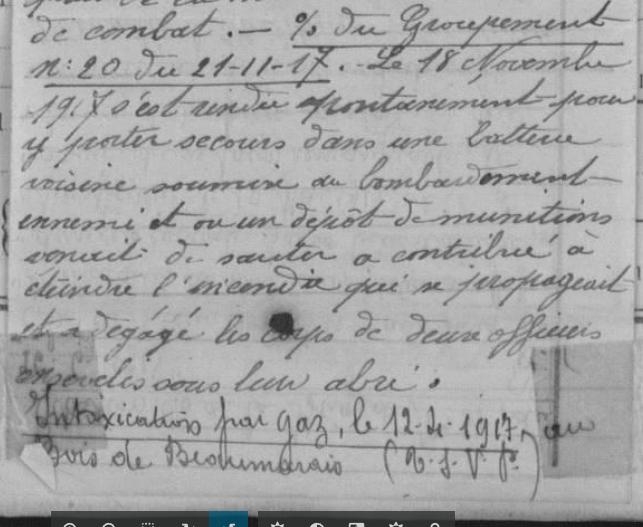 de combat. — % du Groupement
n: 20 du 21-11-17. - Le 18 Novembre
1917 s'est rendu spontanément pour
y porter secours dans une batterie
voisine soumise au bombardement
ennemi et ou un dépôt de munitions
venait de sauter a contribué à
éteindre l'incendie qui se propageait
et a dégagé les corps de deux officiers
ensevelis sous leur abri.
Intoxication par gaz, le 12-4-1917, au
Bois de Beaumarais (T.S.V.P.)